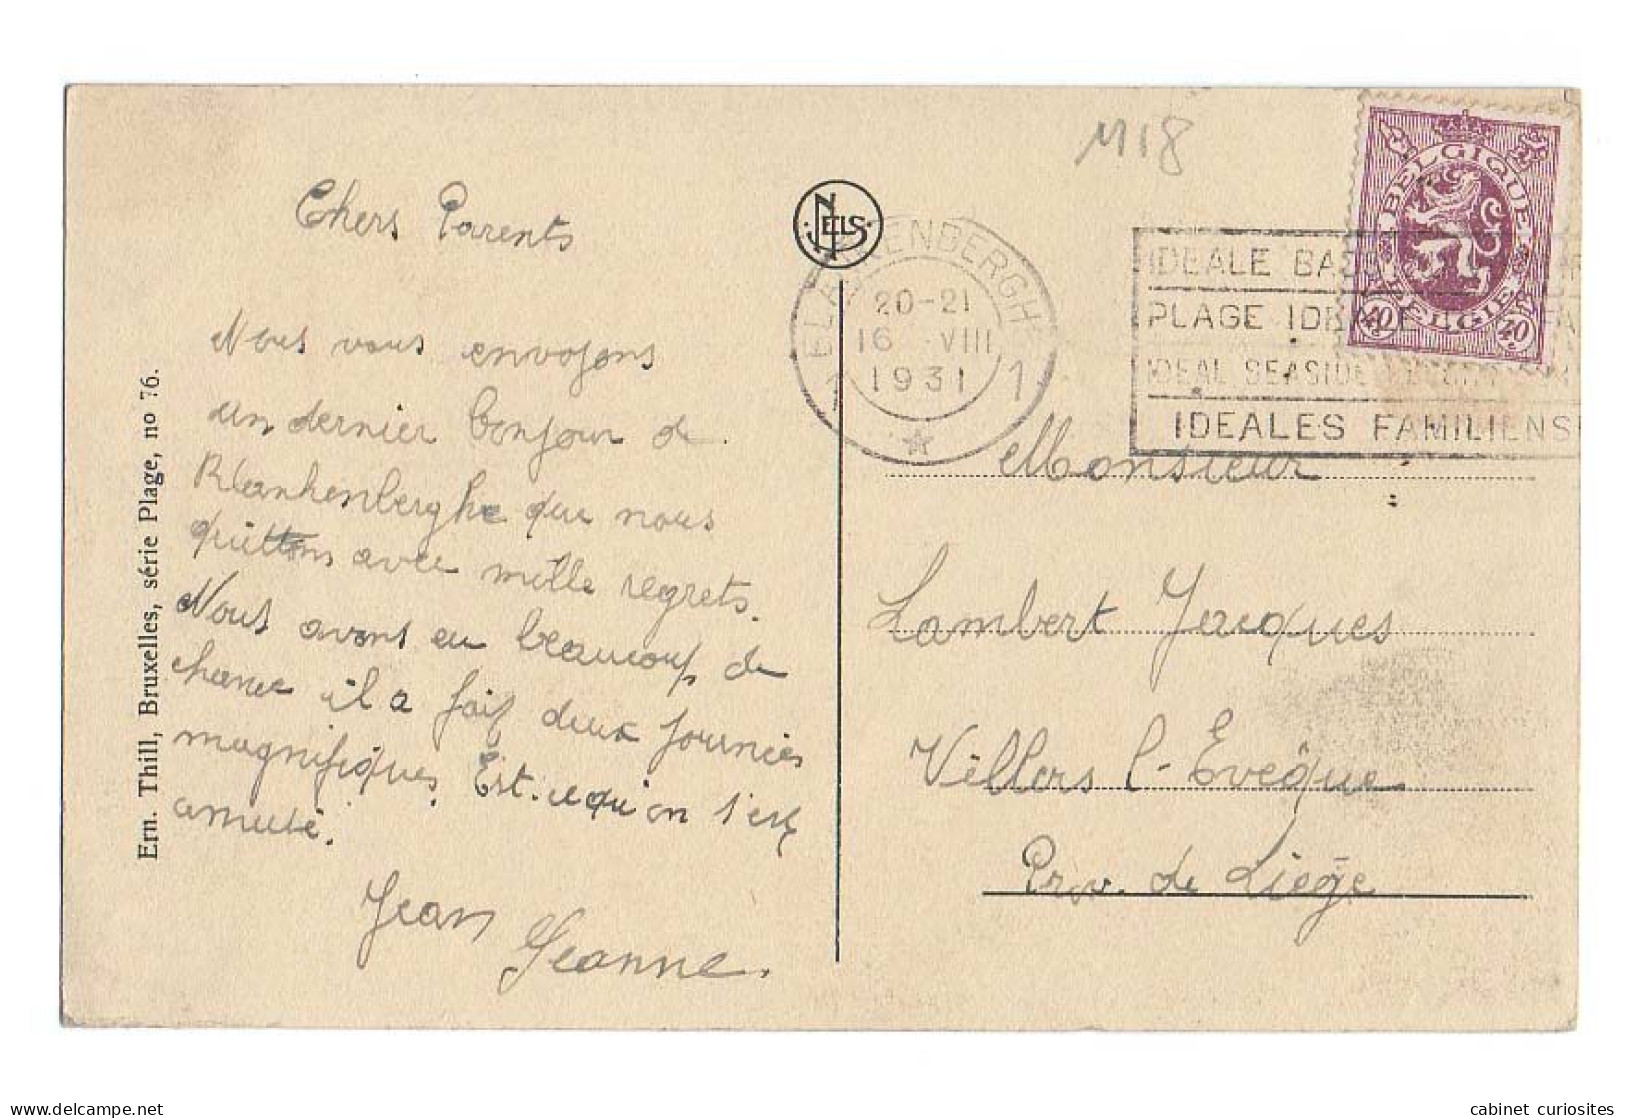 Chers Parents
Nous vous envoyons
un dernier bonjour de
Blankenberghe que nous
quittons avec mille regrets.
Nous avons eu beaucoup de
chance il a fait deux journées
magnifiques. Est-ce qu'on s'est
amusé.
Jean
Jeanne.
Ern. Thill, Bruxelles, série Plage, no 76.
NELS
M18
BLANKENBERGHE
20-21
16 VIII
1931
1 1
IDEALE BA
PLAGE IDEALE
IDEAL SEASIDE
IDEALES FAMILIENS
BELGIQUE
BELGIE
40c 40c
Monsieur
Lambert Jacques
Villers l-Evêque
Prov. de Liège
cabinet_curiosites